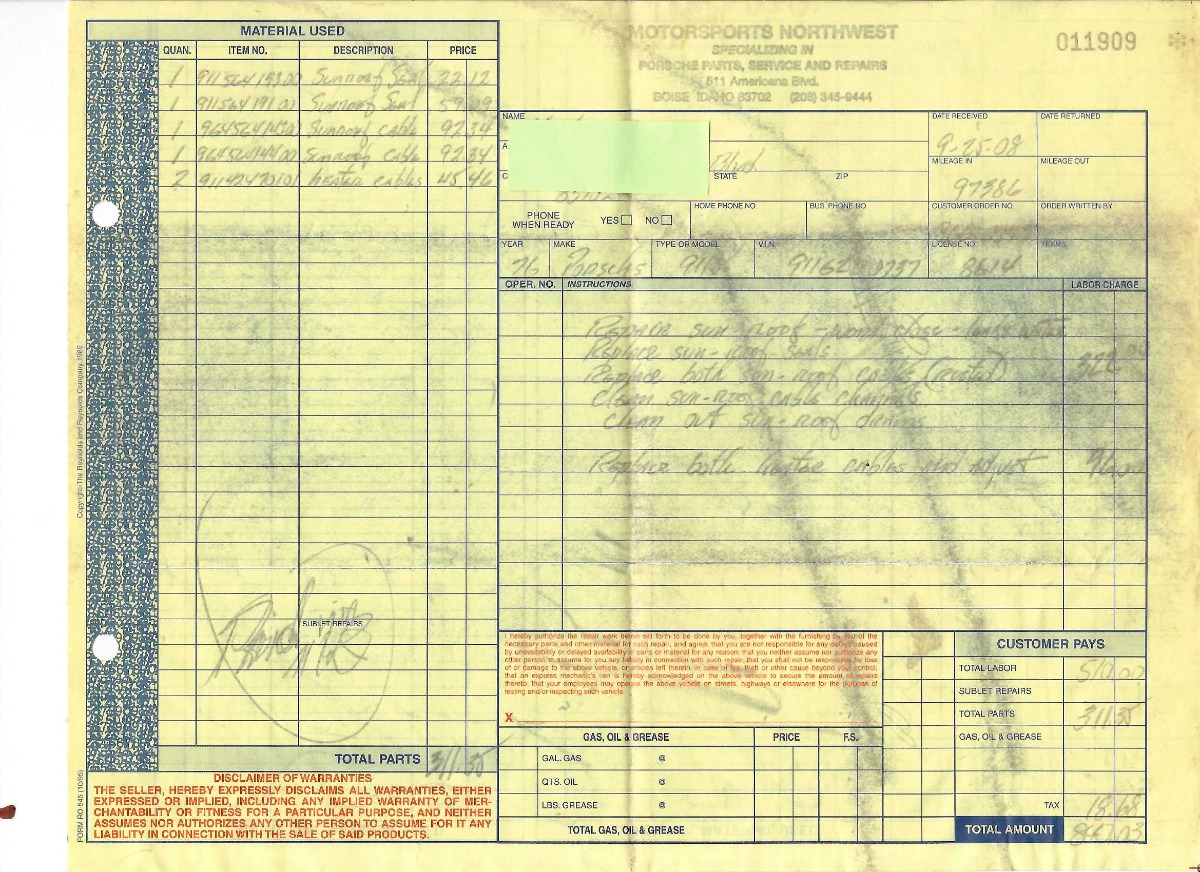 MATERIAL USED
QUAN. ITEM NO. DESCRIPTION PRICE
1 91156419300 Sunroof Seal 22.12
1 91156419101 Sunroof Seal 59.09
1 Sunroof cable 92.34
1 Sunroof cable 92.34
2 91142470101 heater cables 45.46
SUBLET REPAIRS
TOTAL PARTS 311.35
DISCLAIMER OF WARRANTIES
THE SELLER, HEREBY EXPRESSLY DISCLAIMS ALL WARRANTIES, EITHER
EXPRESSED OR IMPLIED, INCLUDING ANY IMPLIED WARRANTY OF MER-
CHANTABILITY OR FITNESS FOR A PARTICULAR PURPOSE, AND NEITHER
ASSUMES NOR AUTHORIZES ANY OTHER PERSON TO ASSUME FOR IT ANY
LIABILITY IN CONNECTION WITH THE SALE OF SAID PRODUCTS.
Copyright The Reynolds and Reynolds Company, 1989
FORM RO 645 (10/95)
MOTORSPORTS NORTHWEST
SPECIALIZING IN
PORSCHE PARTS, SERVICE AND REPAIRS
511 Americana Blvd.
BOISE IDAHO 83702 (208) 345-9444
011909
NAME DATE RECEIVED DATE RETURNED
9-25-08
Blvd. MILEAGE IN MILEAGE OUT
STATE ZIP 97386
PHONE WHEN READY YES NO HOME PHONE NO. BUS. PHONE NO. CUSTOMER ORDER NO. ORDER WRITTEN BY
YEAR MAKE TYPE OR MODEL V.I.N. LICENSE NO. TERMS
76 Porsche 8614
OPER. NO. INSTRUCTIONS LABOR CHARGE
Repair sun-roof - wont close - leaks water
Replace sun-roof seals
Replace both sun-roof cables (rusted)
Clean sun-roof cable channels
Clean out sun-roof drains
Replace both heater cables and adjust 96.00
I hereby authorize the repair work herein set forth to be done by you, together with the furnishing by you of the
necessary parts and other material for such repair, and agree; that you are not responsible for any delays caused
by unavailability or delayed availability of parts or material for any reason; that you neither assume nor authorize any
other person to assume for you any liability in connection with such repair; that you shall not be responsible for loss
of or damage to the above vehicle, or articles left therein, in case of fire, theft or other cause beyond your control;
that an express mechanic's lien is hereby acknowledged on the above vehicle to secure the amount of repairs
thereto; that your employees may operate the above vehicle on streets, highways or elsewhere for the purpose of
testing and/or inspecting such vehicle.
X
CUSTOMER PAYS
TOTAL LABOR 510.00
SUBLET REPAIRS
TOTAL PARTS 311.35
GAS, OIL & GREASE
TAX 18.68
TOTAL AMOUNT
GAS, OIL & GREASE PRICE F.S.
GAL. GAS @
QTS. OIL @
LBS. GREASE @
TOTAL GAS, OIL & GREASE